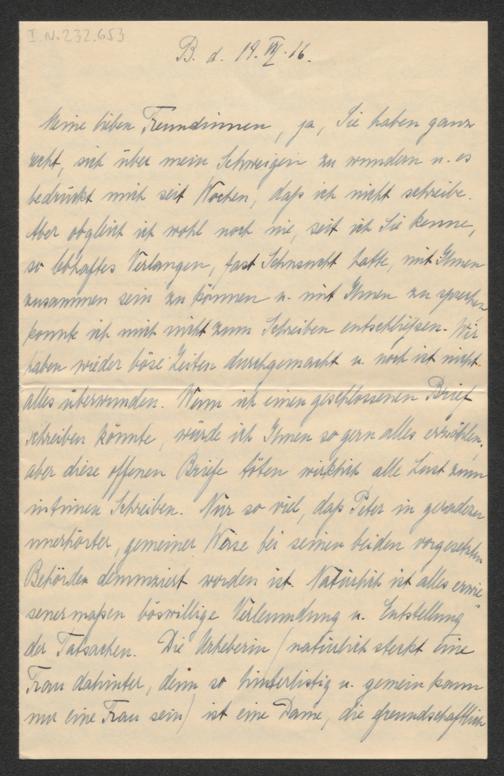 I.N. 232.653
B. d. 19. IV. 16.
Meine lieben Freundinnen, ja, Sie haben ganz
recht, sich über mein Schweigen zu wundern u. es
bedrückt mich seit Wochen, daß ich nicht schreibe.
Aber obgleich ich wohl noch nie, seit ich Sie kenne,
so lebhaftes Verlangen, fast Sehnsucht hatte, mit Ihnen
zusammen sein zu können u. mit Ihnen zu sprechen
konnte ich mich nicht zum Schreiben entschließen. Wir
haben wieder böse Zeiten durchgemacht u. noch ist nicht
alles überwunden. Wenn ich einen geschlossenen Brief
schreiben könnte, würde ich Ihnen so gern alles erzählen,
aber diese offenen Briefe töten wirklich alle Lust zum
intimen Schreiben. Nur so viel, daß Peter in geradezu
unerhörter, gemeiner Weise bei seinen beiden vorgesetzten
Behörden denunziert worden ist. Natürlich ist alles erwie
senermaßen böswillige Verleumdung u. Entstellung
der Tatsachen. Die Urheberin (natürlich steckt eine
Frau dahinter, denn so hinterlistig u. gemein kann
nur eine Frau sein) ist eine Dame, die freundschaftlich